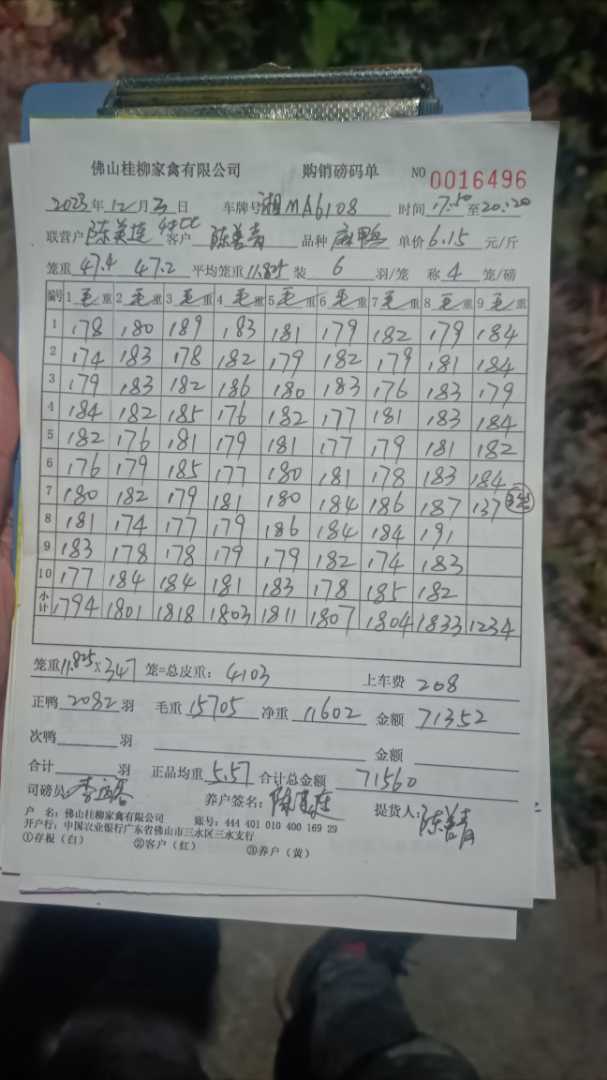 佛山桂柳家禽有限公司 购销磅码单 NO 0016496
2023年12月3日 车牌号湘MA6108 时间17:50至20:20
联营户 陈美连 客户 陈善青 品种 麻鸭 单价6.15元/斤
笼重47.4 47.2 平均笼重11.825 装6羽/笼 称4笼/磅
编号 1毛重 2毛重 3毛重 4毛重 5毛重 6毛重 7毛重 8毛重 9毛重
1 178 180 189 183 181 179 182 179 184
2 174 183 178 182 179 182 179 181 184
3 179 183 182 186 180 183 176 183 179
4 184 182 185 176 182 177 181 183 184
5 182 176 181 179 181 177 179 181 182
6 176 179 185 177 180 181 178 183 184
7 180 182 179 181 180 184 186 187 137
8 181 174 177 179 186 184 184 191
9 183 178 178 179 179 182 174 183
10 177 184 184 181 183 178 185 182
小计 1794 1801 1818 1803 1811 1807 1804 1833 1234
笼重11.825×347笼=总皮重:4103 上车费 208
正鸭2082羽 毛重15705 净重11602 金额71352
次鸭 羽 金额
合计 羽 正品均重5.57 合计总金额71560
司磅员 养户签名: 提货人:陈善青
户 名:佛山桂柳家禽有限公司 账号:444 401 010 400 169 29
开户行:中国农业银行广东省佛山市三水区三水支行
①存根(白) ②客户(红) ③养户(黄)